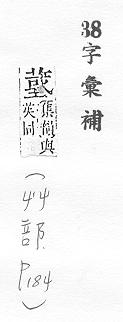 38字彙補
集韻與
英同
(艸部P184)